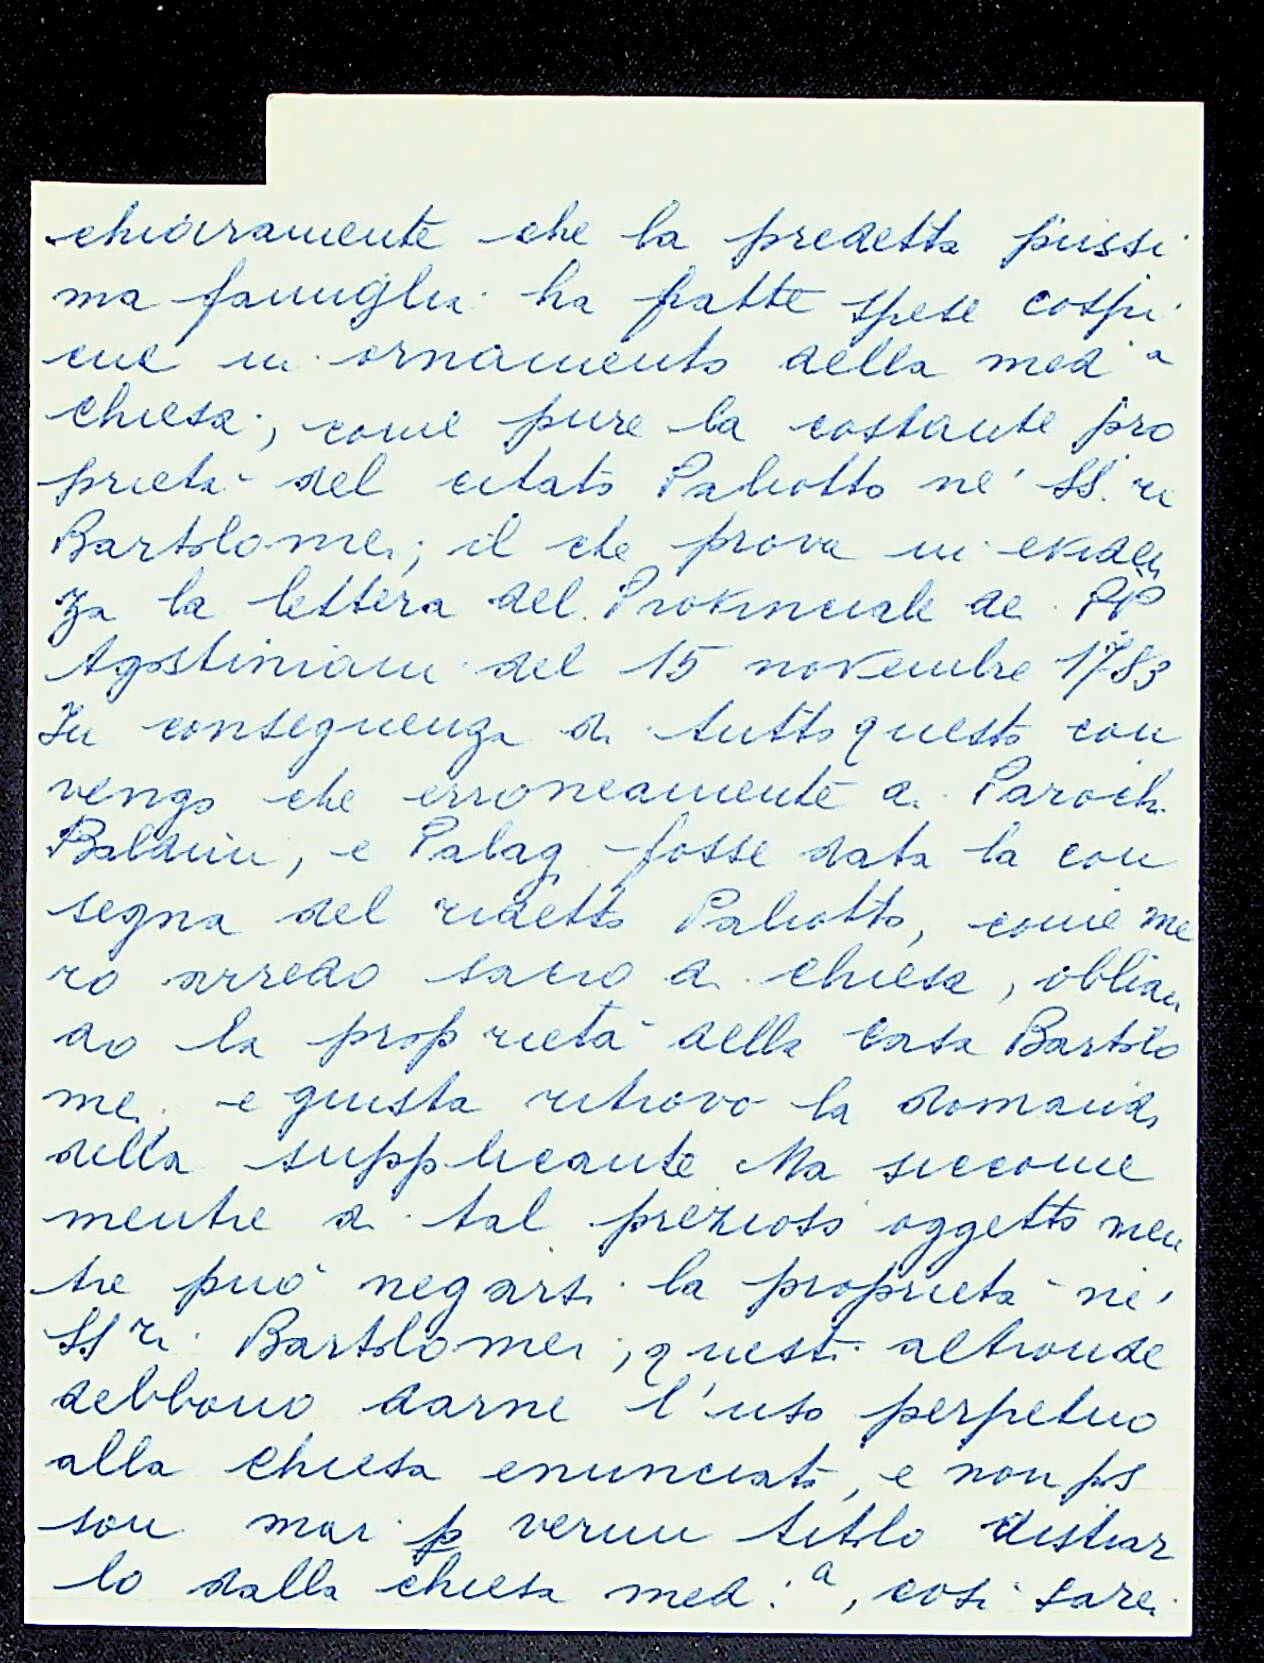 chiaramente che la predetta piissi
ma famiglia ha fatte spese cospi
cue in ornamento della med a
chiesa, come pure la costante pro
prietà del citato Paliotto ne' SS. ri
Bartolomei; il che prova in eviden
za la lettera del Provinciale de PP
Agostiniani del 15 novembre 1783
In conseguenza di tutto questo con
vengo che erroneamente a. Paroch.
Baldini, e Palag. fosse data la con
segna del ridetto Paliotto, come me
ro arredo sacro di chiesa, oblian
do la proprietà della casa Bartolo
mei, e giusta ritrovo la domanda
della supplicante Ma siccome
mentre di tal prezioso oggetto men
tre può negarsi la proprietà ne'
SS ri Bartolomei, questi altronde
debbono darne l'uso perpetuo
alla chiesa enunciata, e non pos
son mai p verun titolo distrar
lo dalla chiesa med: a, così sarei